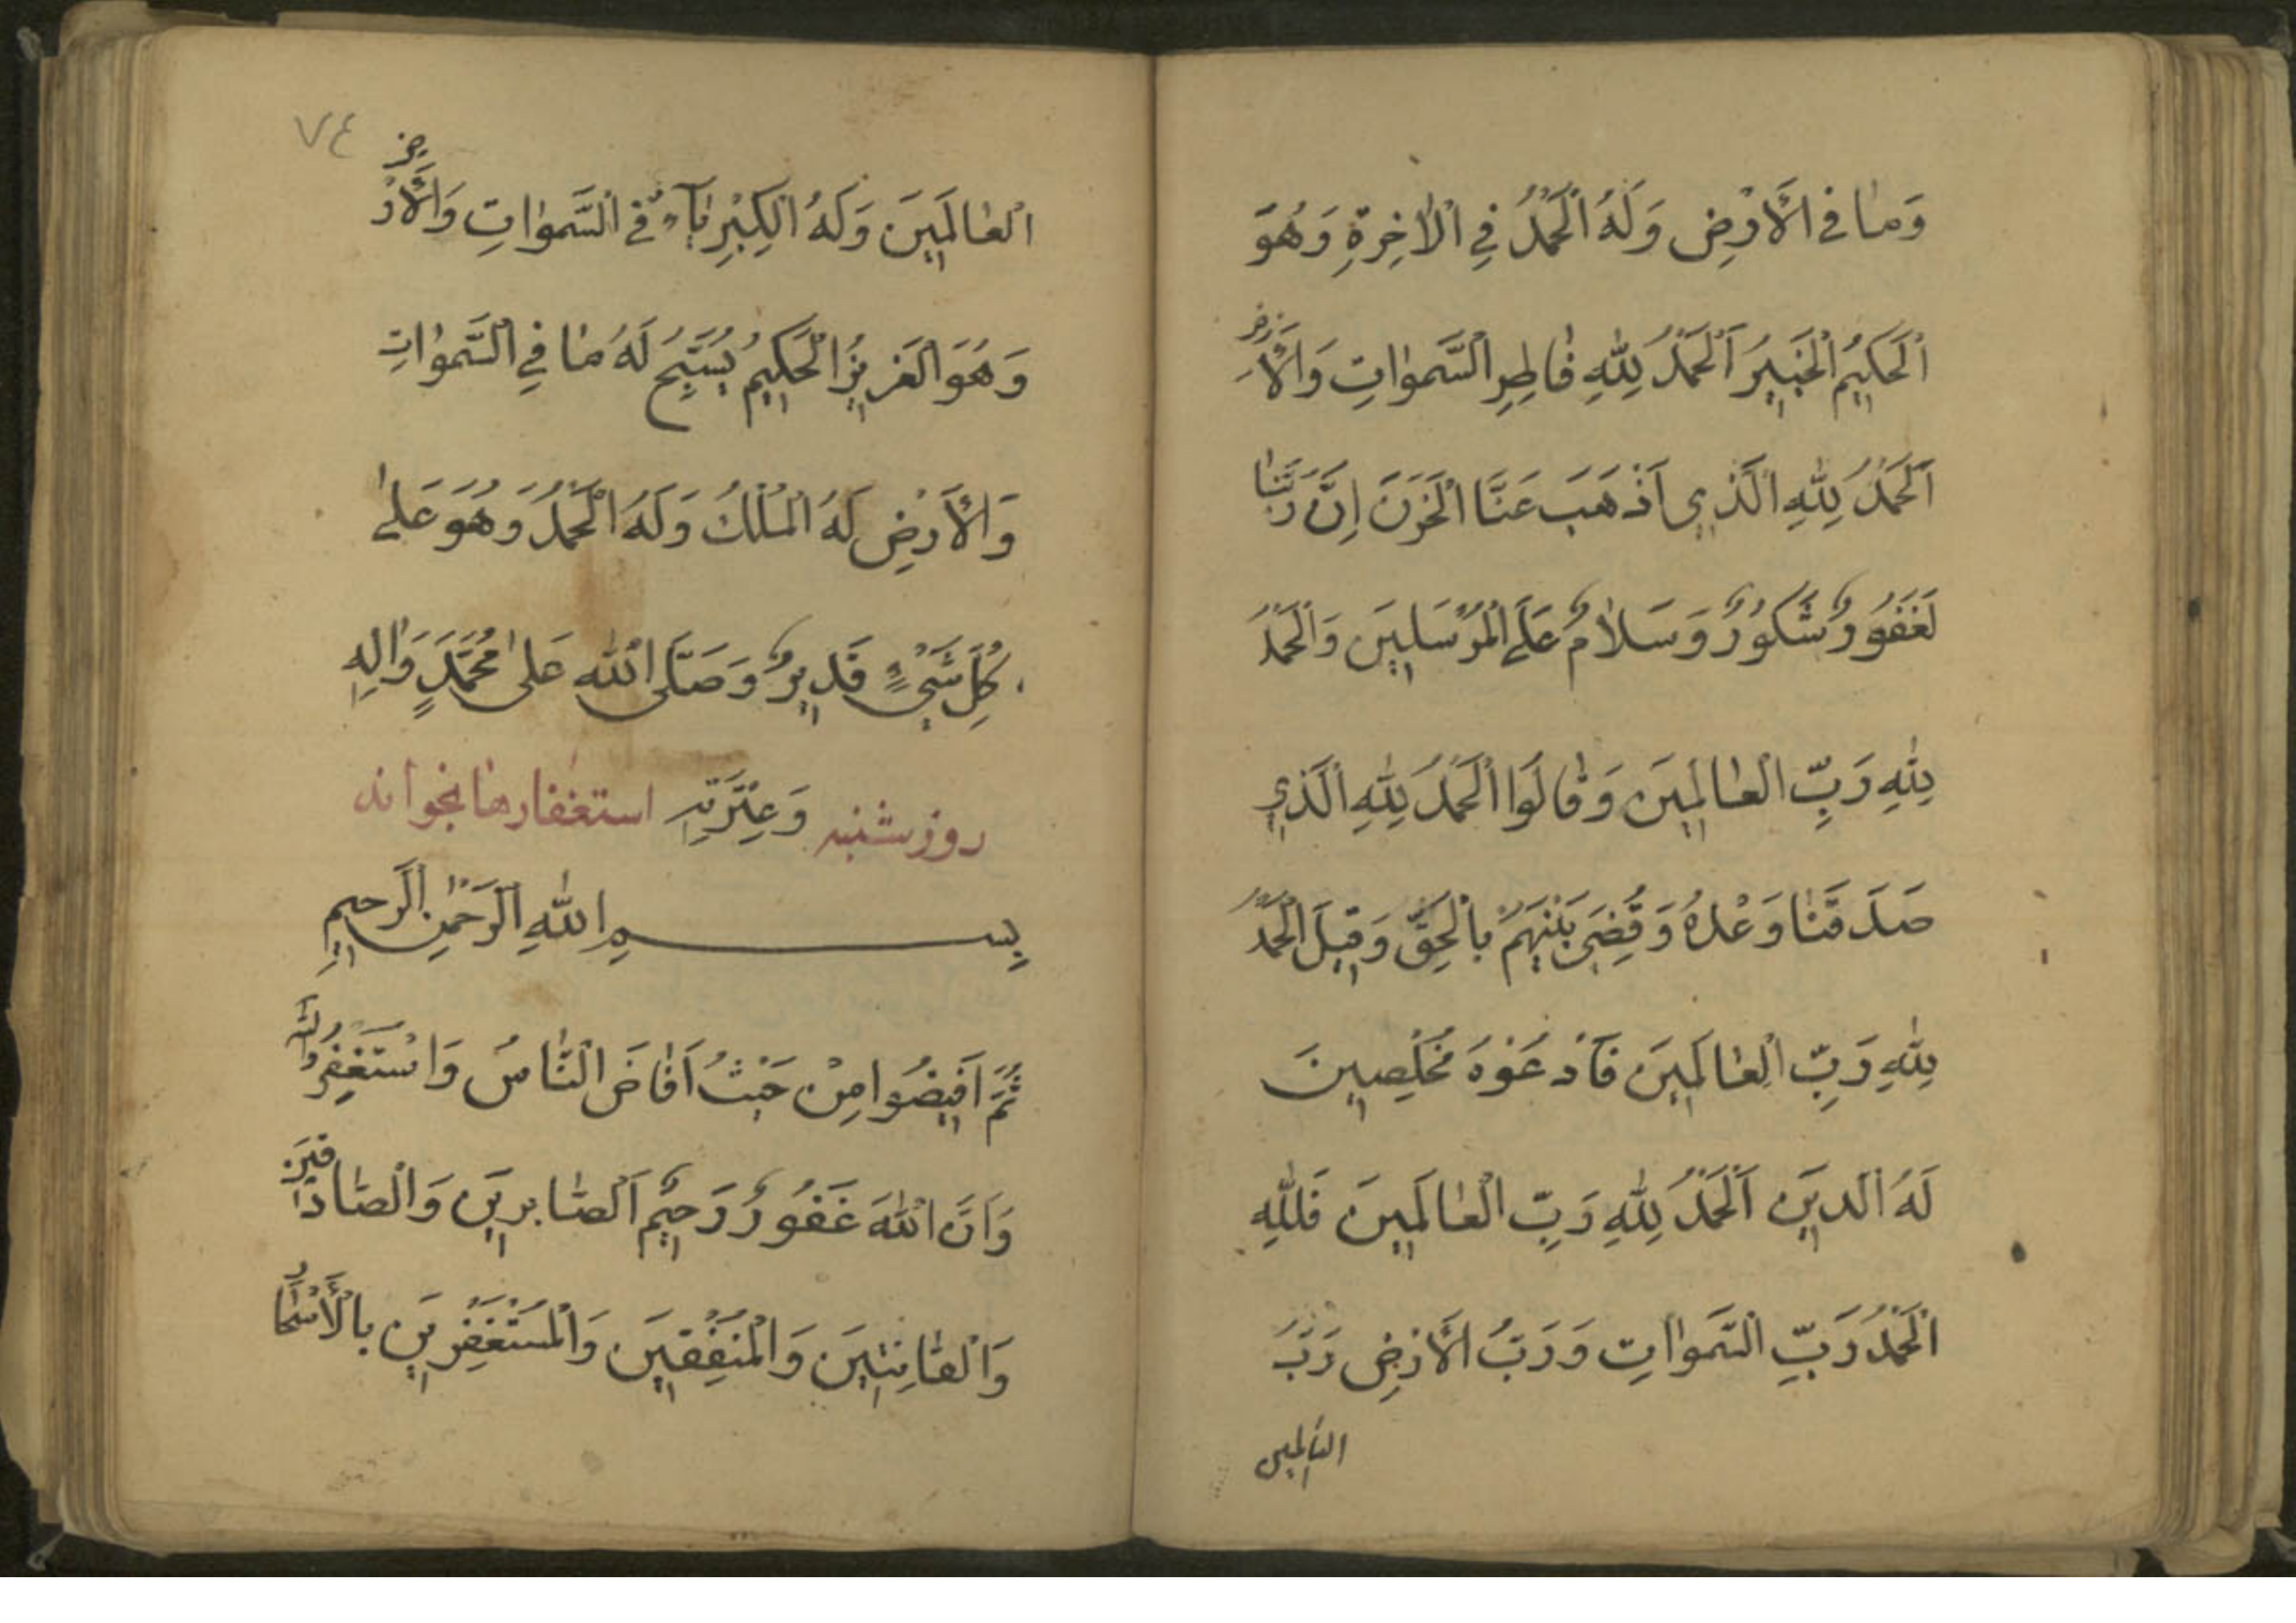 وَمٰا فِي الْأَرْضِ وَلَهُ الْحَمْدُ فِي الْاٰخِرَةِ وَهُوَ
الْحَكِيمُ الْخَبِيرُ اَلْحَمْدُ لِلّٰهِ فٰاطِرِ السَّمٰوٰاتِ وَالْأَرْضِ
اَلْحَمْدُ لِلّٰهِ الَّذِي اَذْهَبَ عَنَّا الْحَزَنَ اِنَّ رَبَّنٰا
لَغَفُورٌ شَكُورٌ وَسَلاٰمٌ عَلَى الْمُرْسَلِينَ وَالْحَمْدُ
لِلّٰهِ رَبِّ الْعٰالَمِينَ وَقٰالُوا الْحَمْدُ لِلّٰهِ الَّذِي
صَدَقَنٰا وَعْدَهُ وَقُضِيَ بَيْنَهُمْ بِالْحَقِّ وَقِيلَ الْحَمْدُ
لِلّٰهِ رَبِّ الْعٰالَمِينَ فَادْعُوهُ مُخْلِصِينَ
لَهُ الدِّينَ اَلْحَمْدُ لِلّٰهِ رَبِّ الْعٰالَمِينَ فَلِلّٰهِ
الْحَمْدُ رَبِّ السَّمٰوٰاتِ وَرَبُّ الْأَرْضِ رَبِّ
العالمين
٧٤
الْعٰالَمِينَ وَلَهُ الْكِبْرِيٰآءُ فِي السَّمٰوٰاتِ وَالْأَرْضِ
وَهُوَ الْعَزِيزُ الْحَكِيمُ يُسَبِّحُ لَهُ مٰا فِي السَّمٰوٰاتِ
وَالْأَرْضِ لَهُ الْمُلْكُ وَلَهُ الْحَمْدُ وَهُوَ عَلىٰ
كُلِّ شَيْءٍ قَدِيرٌ وَصَلَّى اللّٰهُ عَلىٰ مُحَمَّدٍ وَاٰلِهِ
روز شنبه وَعِتْرَتِهِ استغفارها بخواند
بِسْمِ اللّٰهِ الرَّحْمٰنِ الرَّحِيمِ
ثُمَّ اَفِيضُوا مِنْ حَيْثُ اَفٰاضَ النّٰاسُ وَاسْتَغْفِرُوا اللّٰهَ
وَاَنَّ اللّٰهَ غَفُورٌ رَحِيمٌ اَلصّٰابِرِينَ وَالْصّٰادِقِينَ
وَالْقٰانِتِينَ وَالْمُنْفِقِينَ وَالْمُسْتَغْفِرِينَ بِالْأَسْحٰارِ